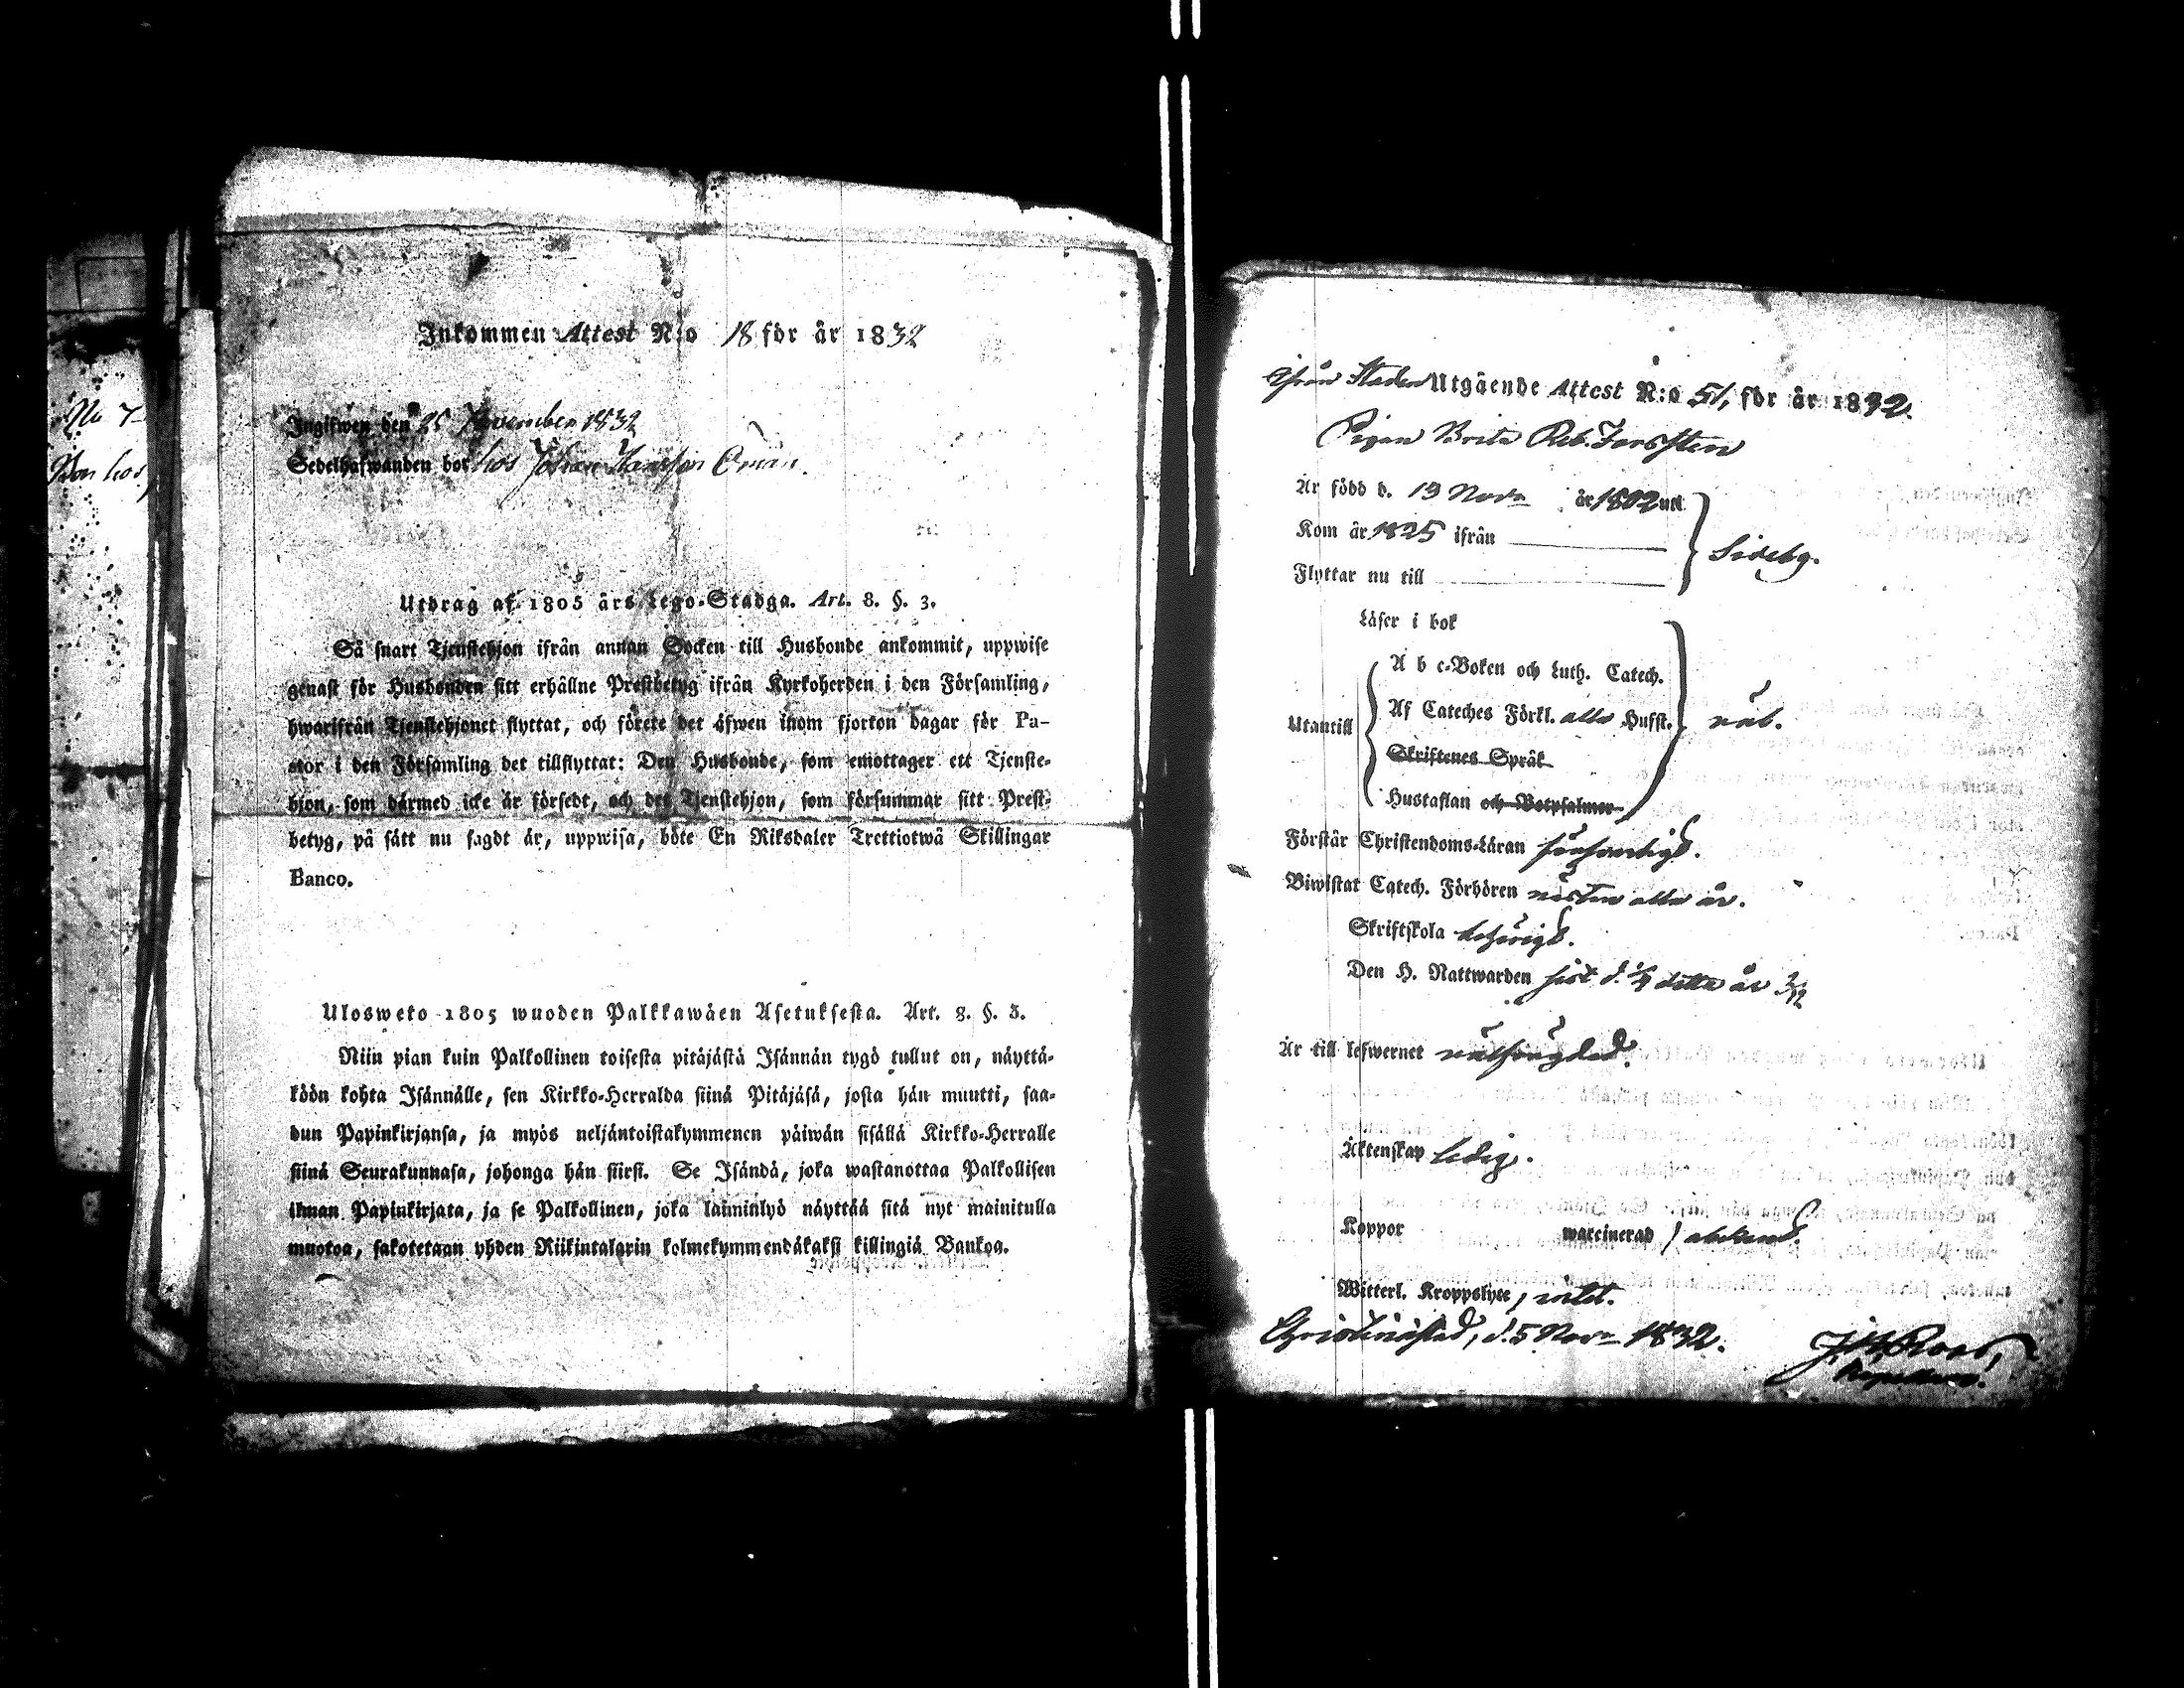 No 7
Bor hos
Inkommen Attest N:o 18 för år 1832
Ingifwen den 25 November 1832
Sedelhafwanden bor hos Johan Hansson Öman.
Utdrag af 1805 års Lego-Stadga. Art. 8. §. 3.
Så snart Tjenstehjon ifrån annan Socken till Husbonde ankommit, uppwise
genast för Husbonden sitt erhållne Prestbetyg ifrån Kyrkoherden i den Församling,
hwarifrån Tjenstehjonet flyttat, och förete det äfwen inom fjorton dagar för Pa-
stor i den Församling det tillflyttat: Den Husbonde, som emottager ett Tjenste-
hjon, som därmed icke är försedt, och det Tjenstehjon, som försummar sitt Prest-
betyg, på sätt nu sagdt är, uppwisa, böte En Riksdaler Trettiotwå Skillingar
Banco.
Ulosweto 1805 wuoden Palkkawäen Asetuksesta. Art. 8. §. 3.
Niin pian kuin Palkollinen toisesta pitäjästä Isännän tygö tullut on, näyttä-
köön kohta Isännälle, sen Kirkko-Herralda siinä Pitäjäsä, josta hän muutti, saa-
dun Papinkirjansa, ja myös neljäntoistakymmenen päiwän sisällä Kirkko-Herralle
siinä Seurakunnasa, johonga hän siirsi. Se Isändä, joka wastanottaa Palkollisen
ilman Papinkirjata, ja se Palkollinen, joka laiminlyö näyttää sitä nyt mainitulla
muotoa, sakotetaan yhden Riikintalarin kolmekymmendäkaksi killingiä Bankoa.
Ifrån Staden Utgående Attest N:o 51, för år 1832.
Pigan Brita Reb. Forssten
Är född d. 19 Nov. år 1802 uti
Kom år 1825 ifrån
Flyttar nu till
Sideby.
Läser i bok
Utantill
A b c-Boken och Luth. Catech.
Af Cateches Förkl. alla Hufst.
Skriftenes Språk
Hustaflan och Botpsalmer
näb.
Förstår Christendoms-Läran försvarligt.
Biwistat Catech. Förhören nästan alla år.
Skriftskola behörigt.
Den H. Nattwarden sist d. detta år
Är till lefwernet wälfrägdad.
Äktenskap ledig.
Koppor waccinerad
Witterl. Kroppslyte, intet.
Christinæstad, d. 5 Nov. 1832.